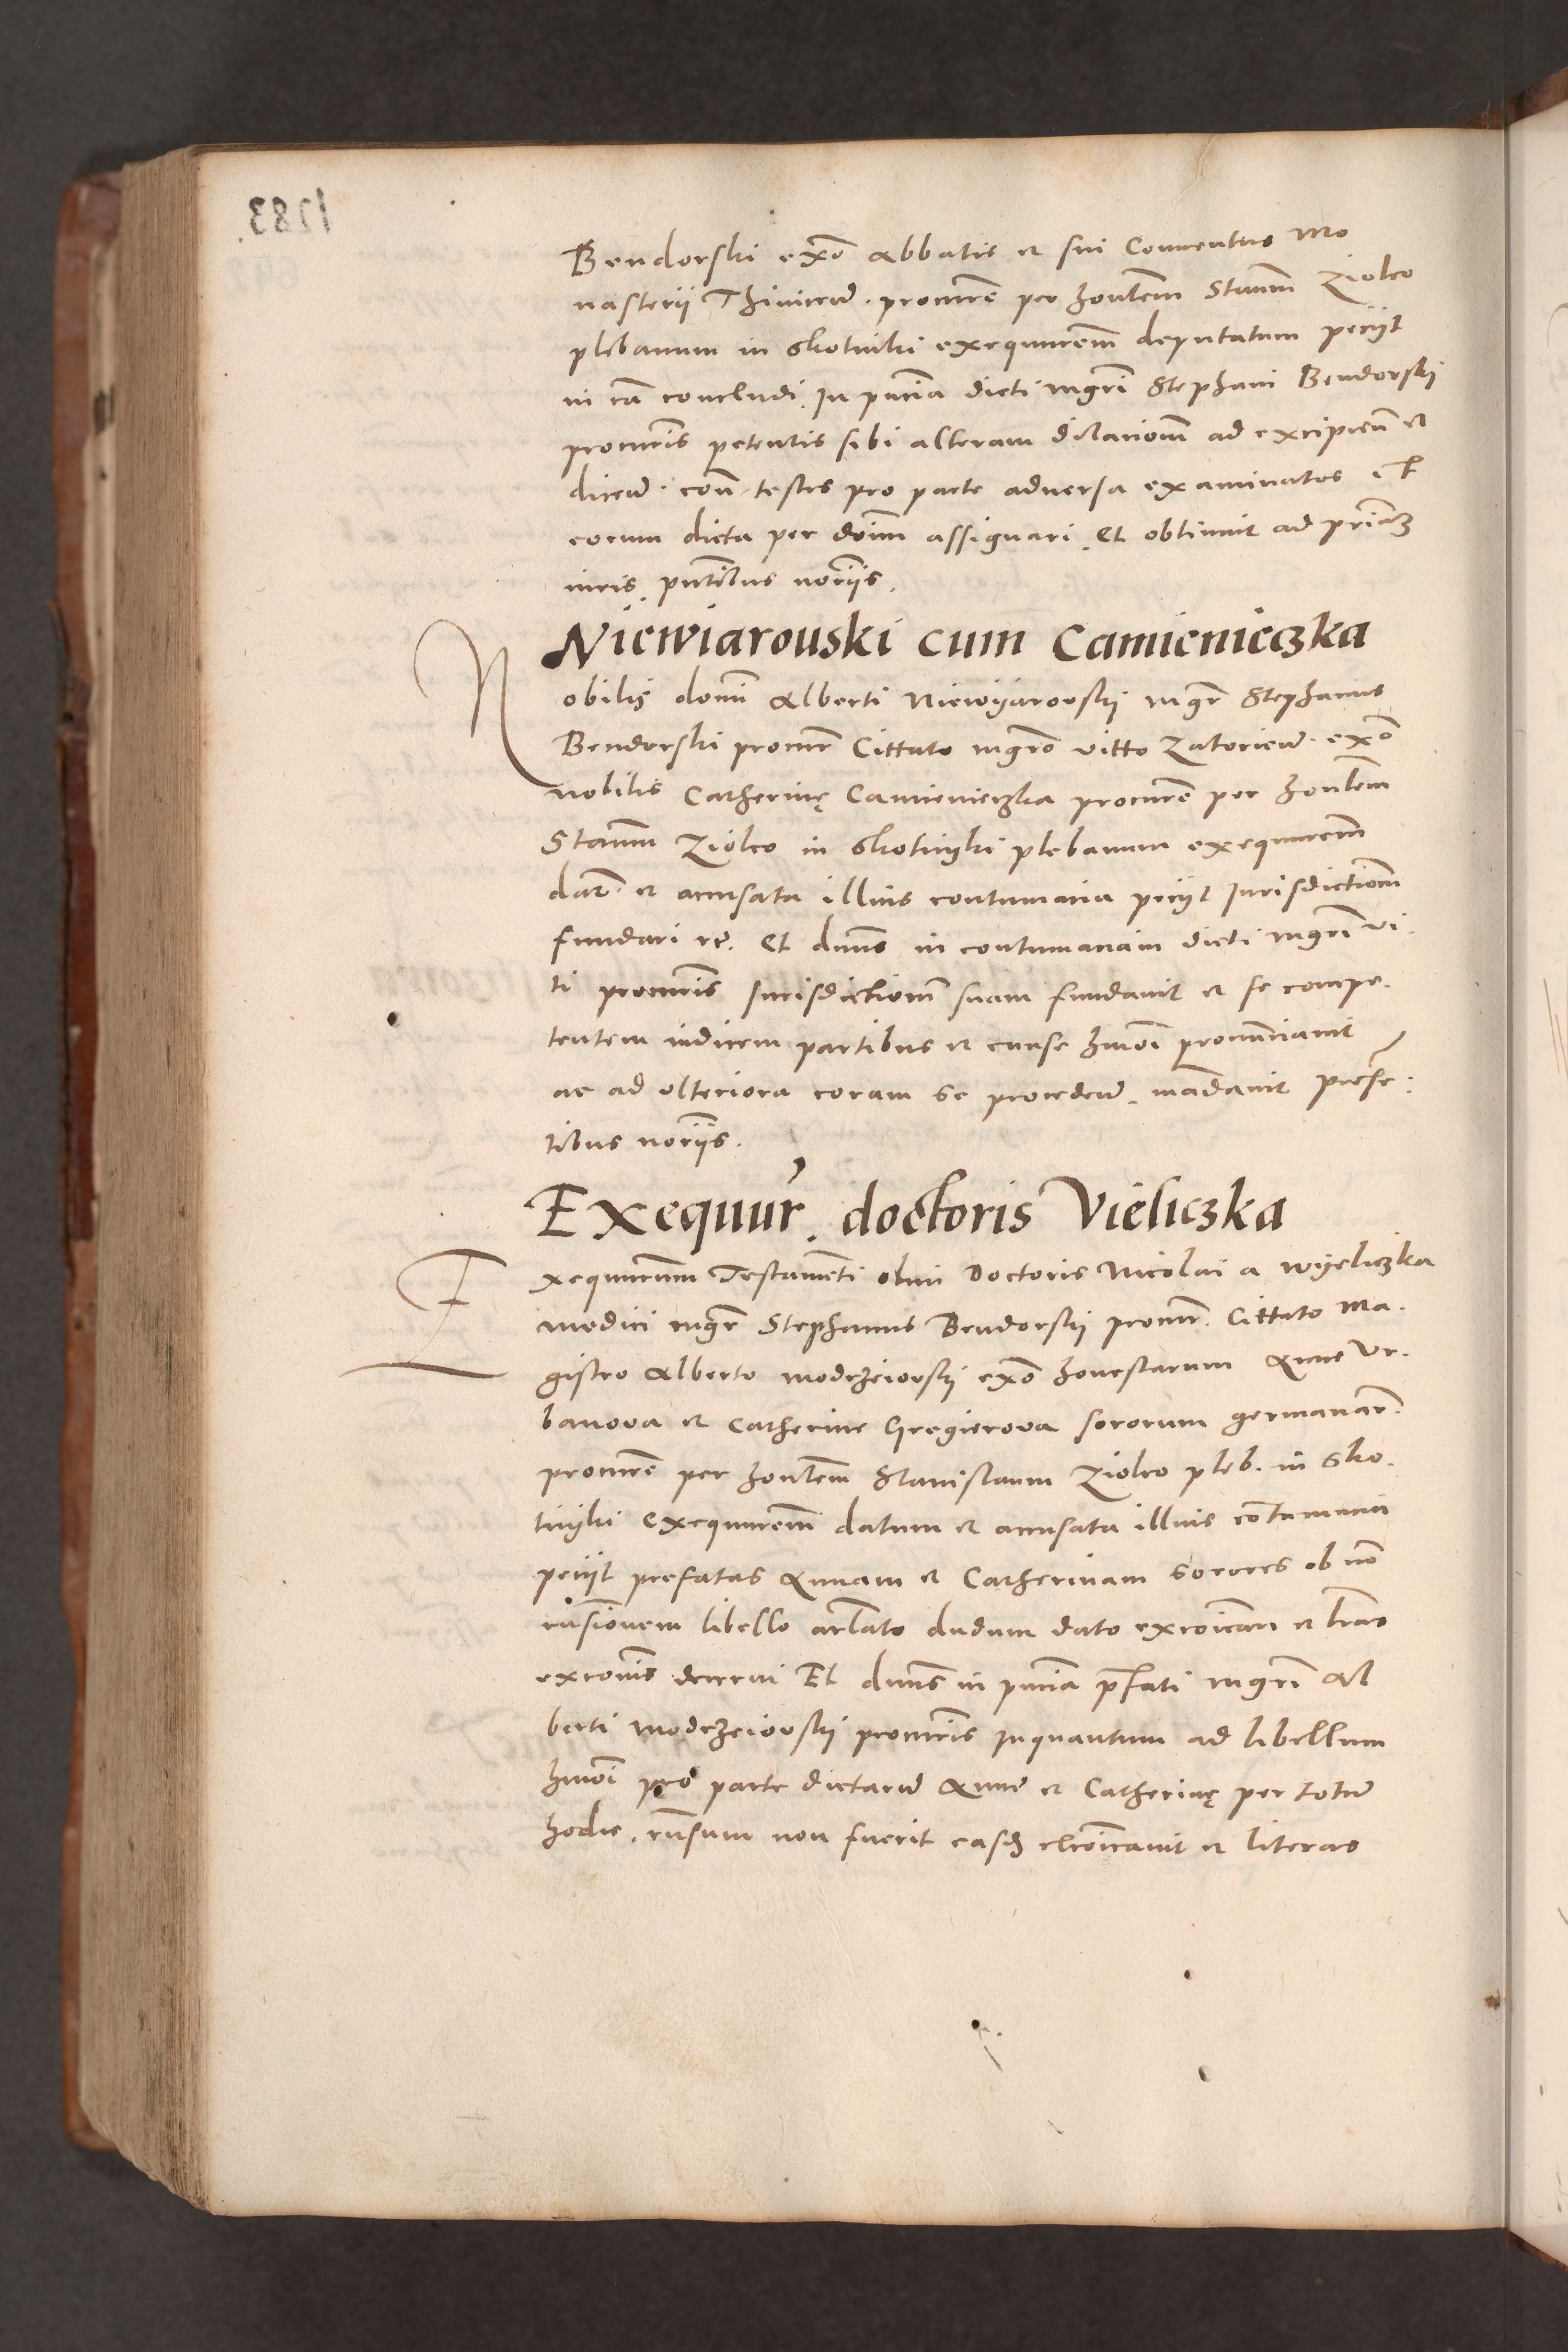 1283
Bendorski exõ Abbatis et sui Conuentus Mo
nasterii Thinicen̄. procurẽ per honlem̃ Stanm̃ Ziolco
plebanum in Skotniki exequutorem̃ deputatum peciit
in cã concludi. In pñcia dicti mgrĩ Stephani Bendorskij
procurĩs petentis sibi alteram dilacionem̃ ad excipien̄ et
dicen̄. con̄ testes pro parte aduersa examinatos et
eorum dicta per dnũm assignari. Et obtinuit ad primã
iuris. pñtibus norĩis.
Niewiarouski cum Camienieczka
Nobilis domini Alberti Niewyarovskij mgr̃ Stephanus
Bendorski procur̃ Cittato mgrõ Vitto Zatorien̄. exõ
nobilis Catherinę Camienieczka procurẽ per honlem̃
Stanm̃ Ziolco in Skotnyki plebanum exequutorem̃
dat̃. et accusata illius contumacia peciit Jurisdictiom̃
fundari etc. Et dnũs in contumaciam dicti mgrĩ Vi.
ti procurĩs Jurisdictiom̃ suam fundauit et se compe.
tentem iudicem partibus et cause hmõi pronunciauit
ac ad vlteriora coram se proceden̄. mãdauit presẽ.
tibus norĩis.
Exequur̃. doctoris Vieliczka
Exequutorum Testamẽti olim Doctoris Nicolai a Wyeliczka
medici mgr̃ Stephanus Bendorskij procur̃. Cittato Ma.
gistro Alberto Modrzeiovskij exõ honestarum Anne Vr.
banova et Catherine Gregierova sororum germanar̃.
procurẽ per honlem̃ Stanislaum Ziolco pleb. in Sko.
tnyki exequutorem̃ datum et accusata illius cõtumacia
peciit prefatas Annam et Catherinam sorores ob nõ
rñsionem libello artlato dudum dato excõicari et lrãs
excõnis decerni Et dnũs in pñcia p̃fati mgrĩ Al
berti Modrzeiovskij procurĩs Inquantum ad libellum
hmõi pro parte dictarũ Anne et Catherinę per totũ
hodie. rñsum non fuerit easd̃ excõicauit et literas